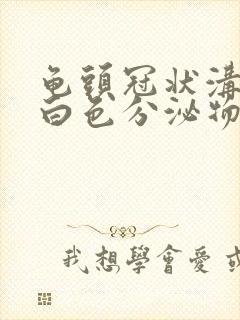 龟頭冠状溝
白色分泌物
我想學會愛或